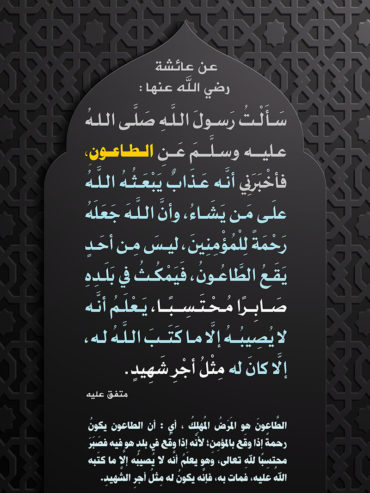 عن عائشة
رضي الله عنها :
سَأَلْتُ رَسولَ اللَّهِ صَلَّى اللهُ
عليه وسلَّمَ عَنِ الطاعونِ،
فأخْبَرَنِي أنَّه عَذَابٌ يَبْعَثُهُ اللَّهُ
علَى مَن يَشَاءُ، وأنَّ اللَّهَ جَعَلَهُ
رَحْمَةً لِلْمُؤْمِنِينَ، ليسَ مِن أحَدٍ
يَقَعُ الطَّاعُونُ، فَيَمْكُثُ في بَلَدِهِ
صَابِرًا مُحْتَسِبًا، يَعْلَمُ أنَّه
لا يُصِيبُهُ إلَّا ما كَتَبَ اللَّهُ له ،
إلَّا كانَ له مِثْلُ أجْرِ شَهِيدٍ .
متفق عليه
الطَّاعون هو المَرَضُ المُهلِكُ ، أي : أن الطاعون يكونُ
رحمةً إذا وقع بالمؤمِنِ؛ لأنَّه إذا وقَع في بلد هو فيه فصَبَر
محتسِبًا للَّه تعالى، وهو يعلَمُ أنَّه لا يُصيبُه إلَّا ما كتَبه
اللَّه عليه، فمات به، فإنَّه يكون له مثلُ أجرِ الشَّهيدِ.